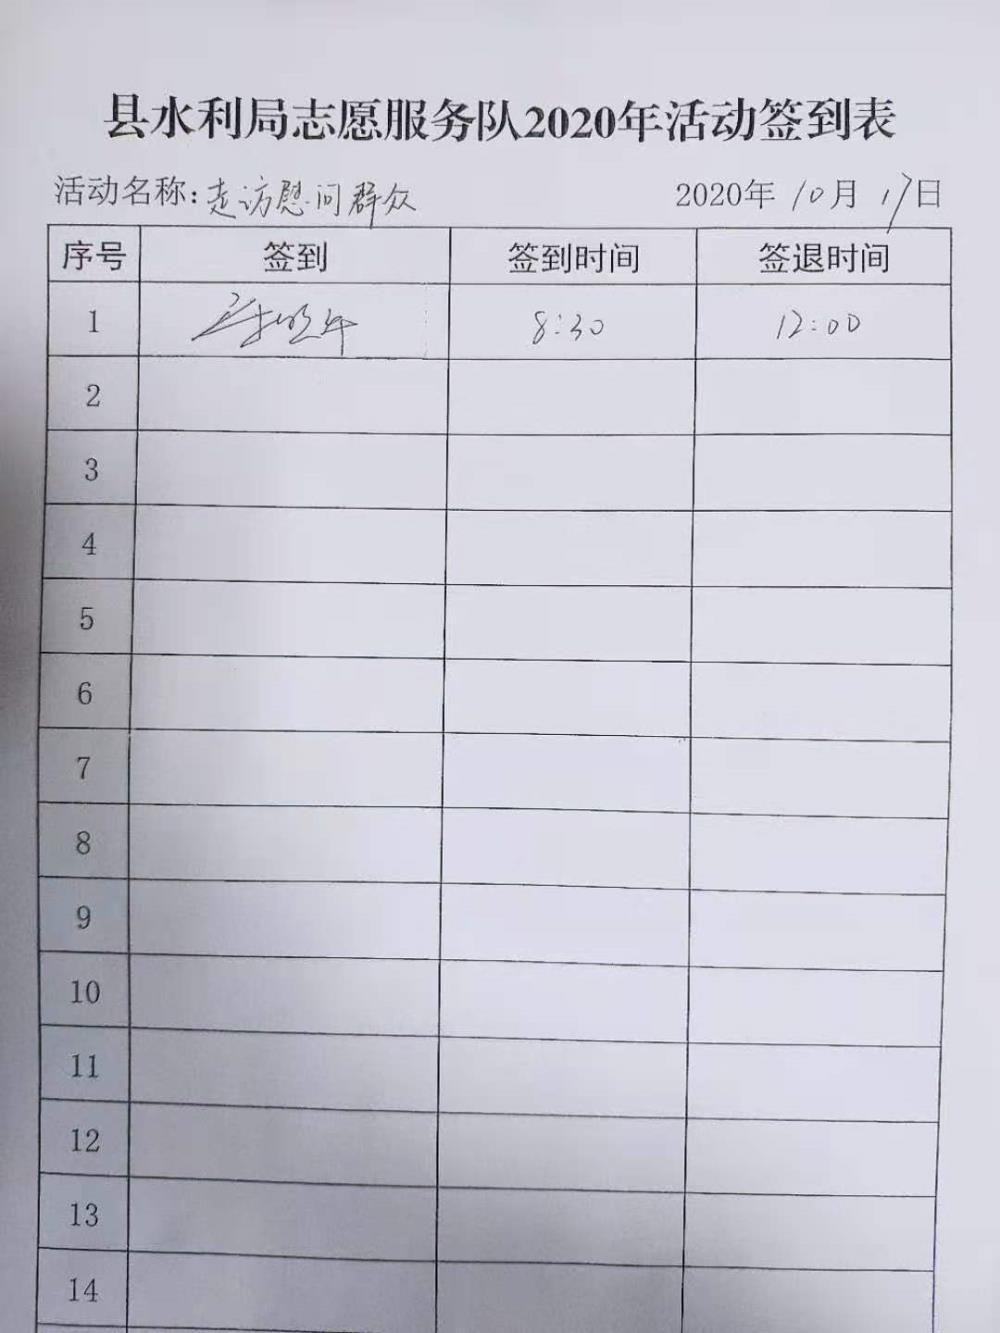 县水利局志愿服务队2020年活动签到表
活动名称:走访慰问群众 2020年10月17日
序号 签到 签到时间 签退时间
1 8:30 12:00
2
3
4
5
6
7
8
9
10
11
12
13
14